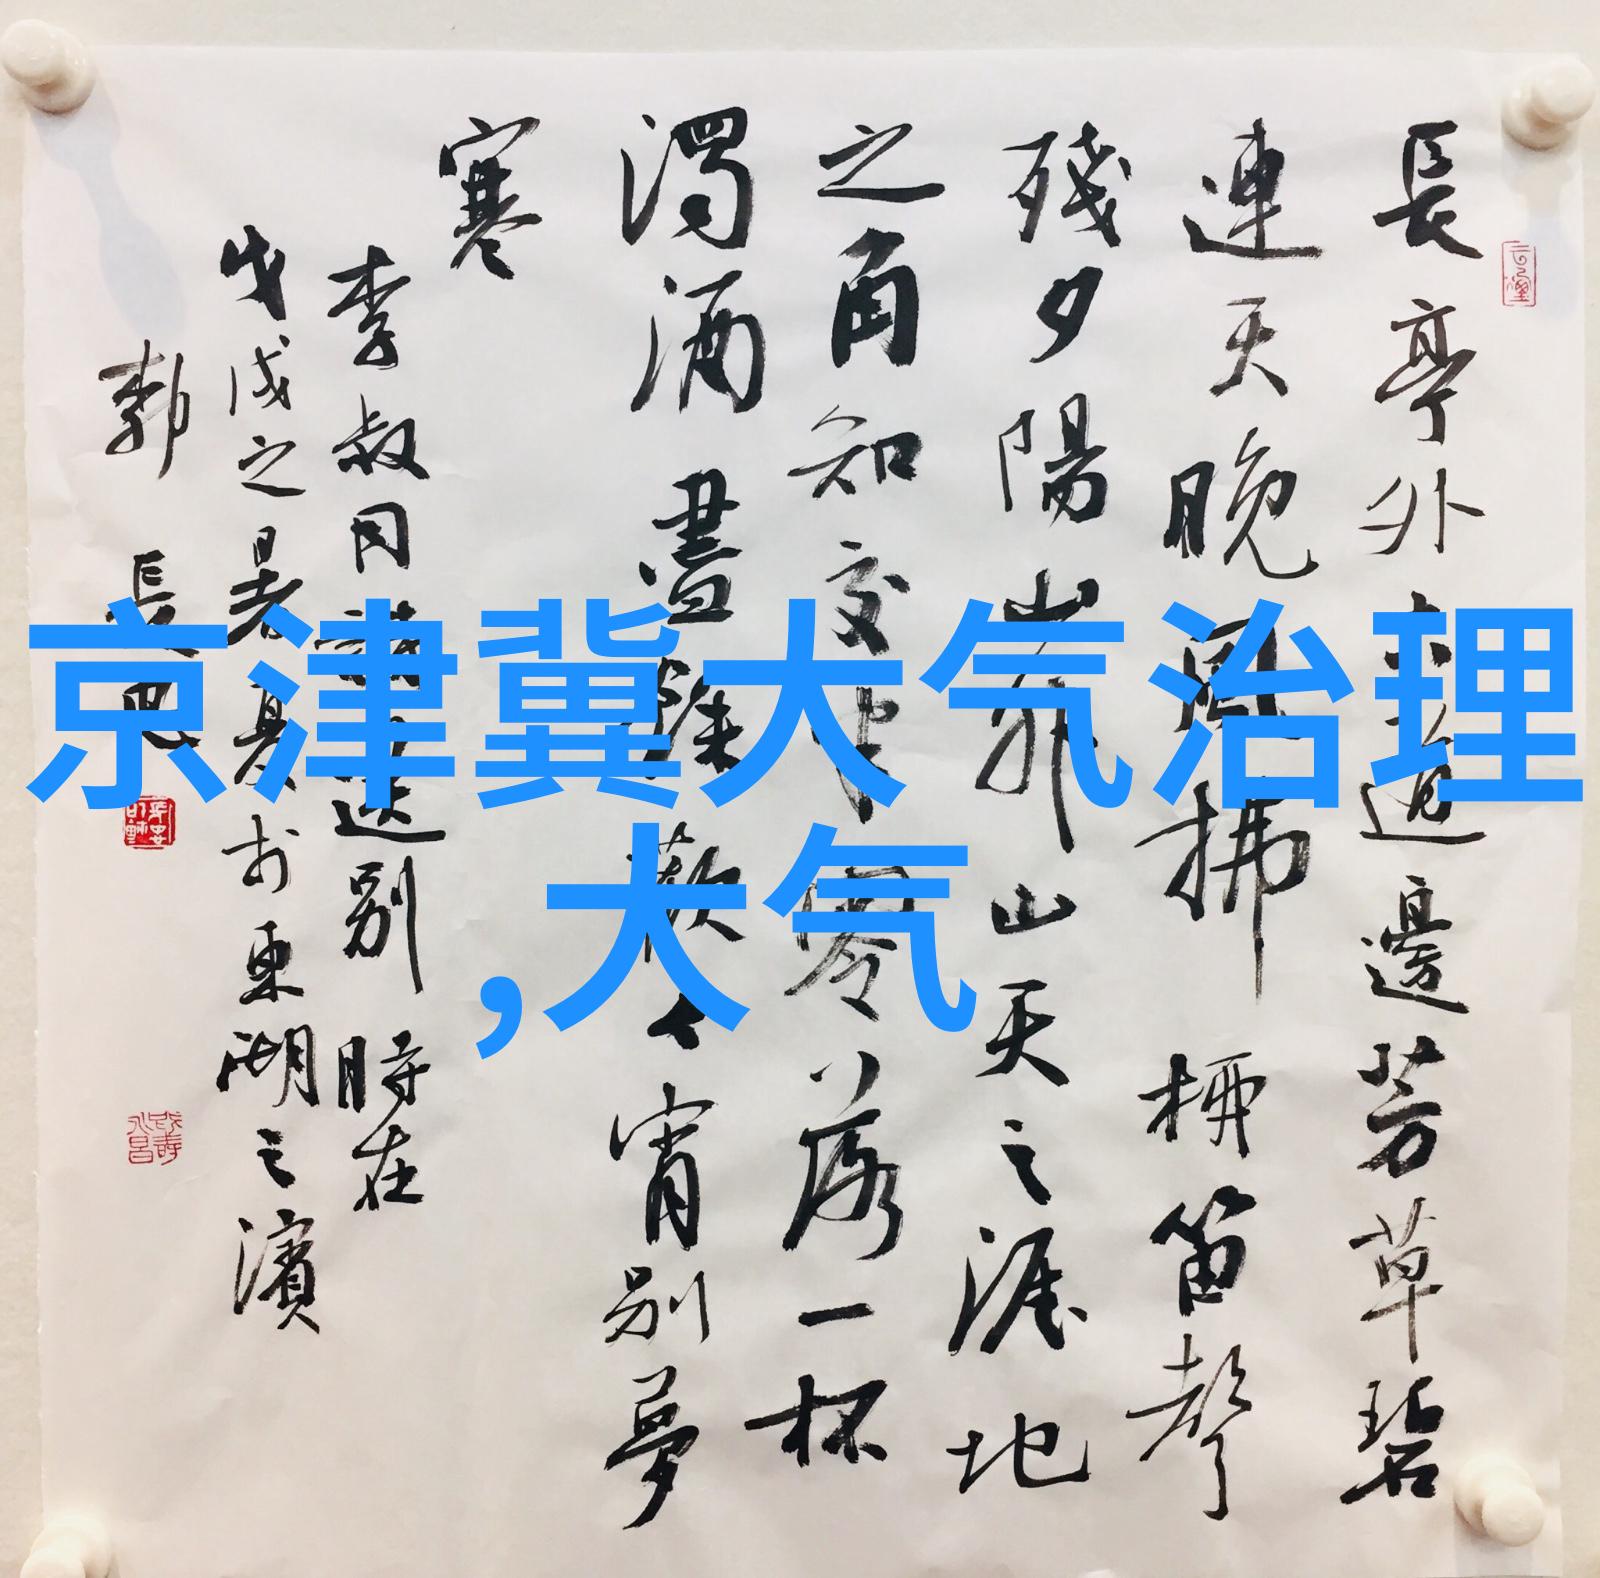 京津冀大气治理
,大气
長亭外古道邊芳草碧
連天晚風拂柳笛聲
殘夕陽山外山天之涯地
之角知交半零落一杯
濁酒盡餘歡今宵別夢
寒
李叔同詞送別 時在
戊戌之暑夏於東湖之濱
長